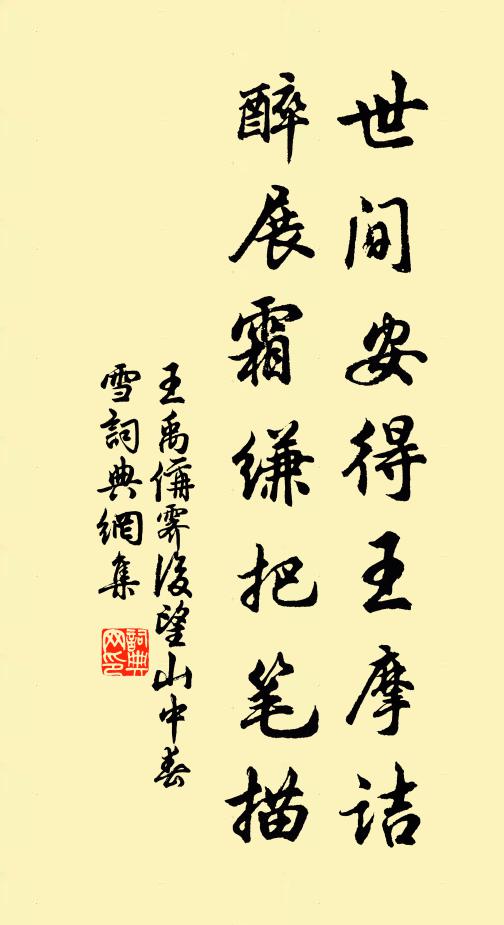 世间安得王摩诘
醉展霜缣把笔描
王禹偁霁後望山中春
雪詞典網集
詞典
网印